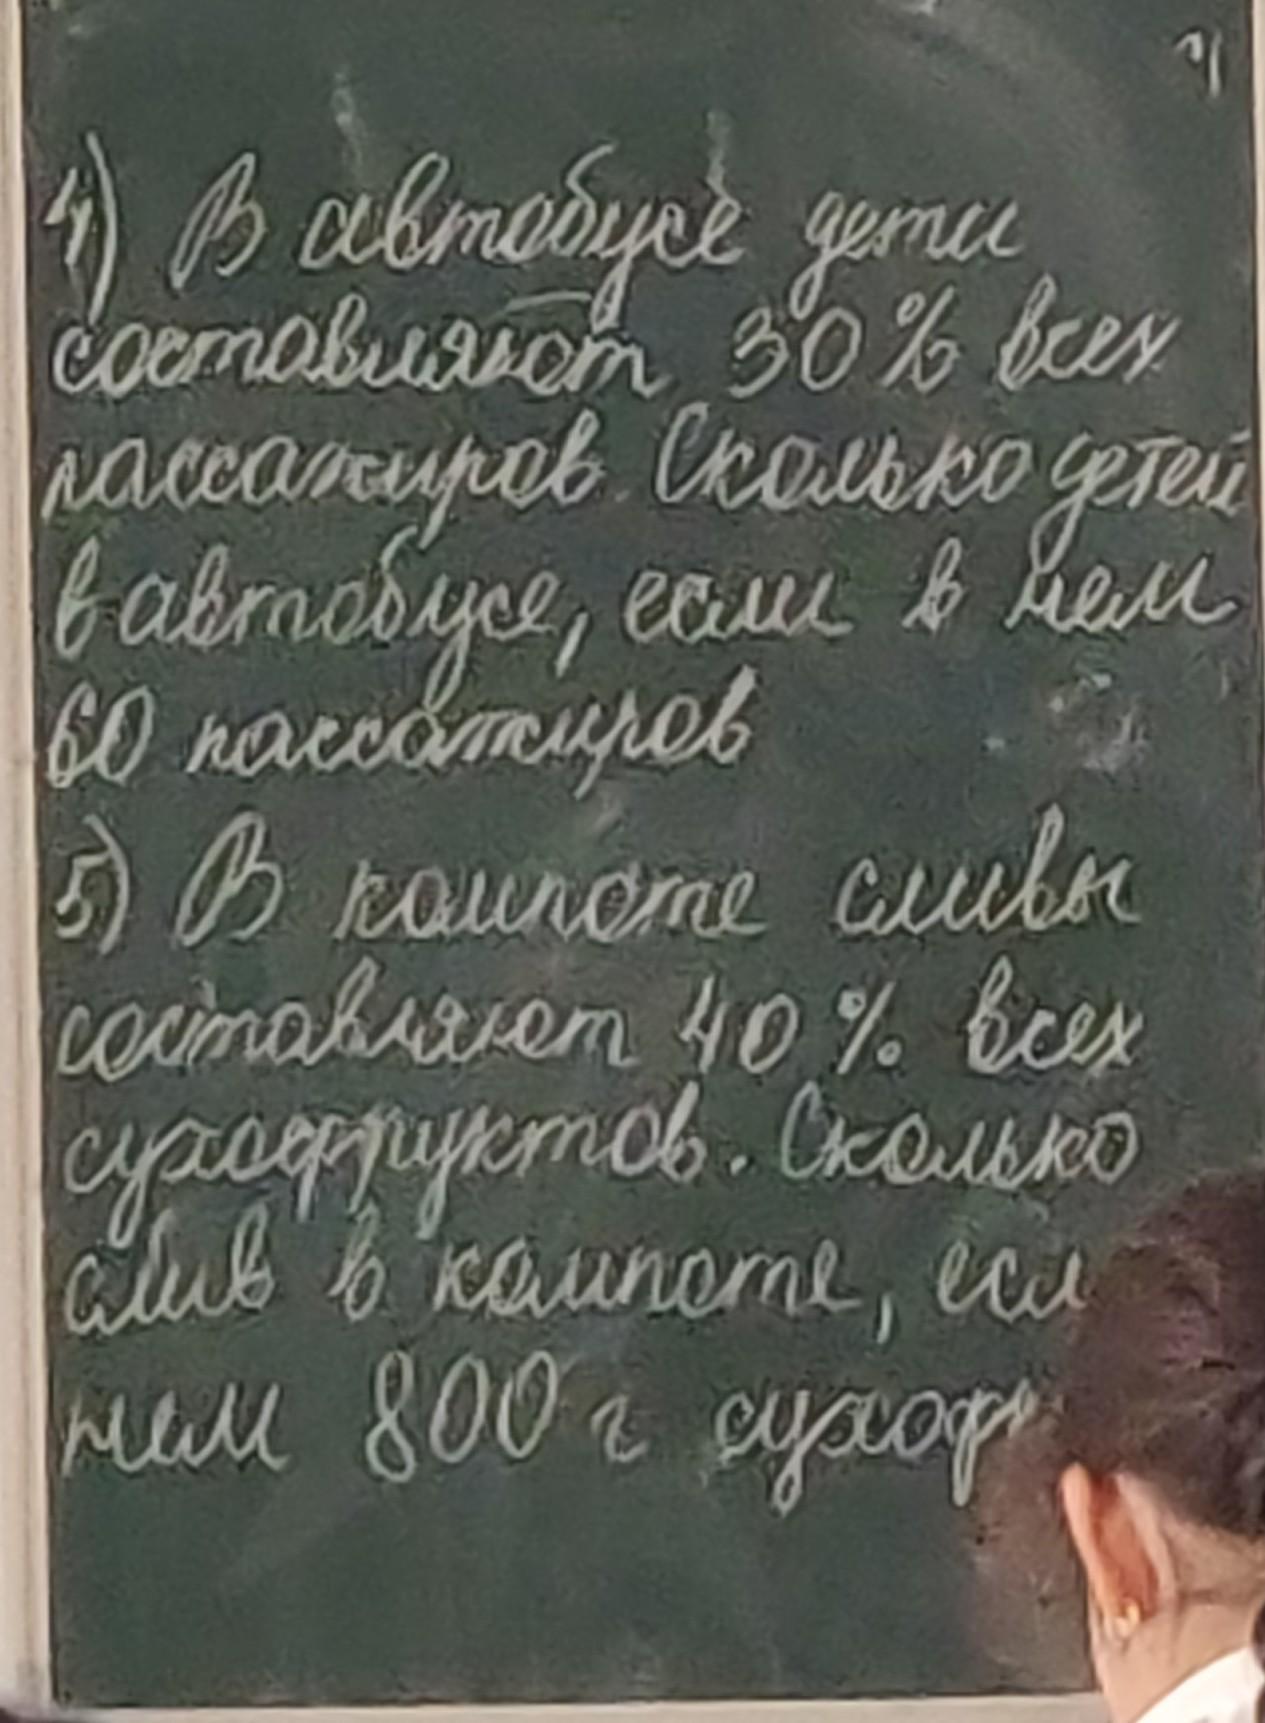 4) В автобусе дети
составляют 30% всех
пассажиров. Сколько детей
в автобусе, если в нем
60 пассажиров
5) В компоте сливы
составляют 40% всех
сухофруктов. Сколько
слив в компоте, есл
нем 800 г сухоф